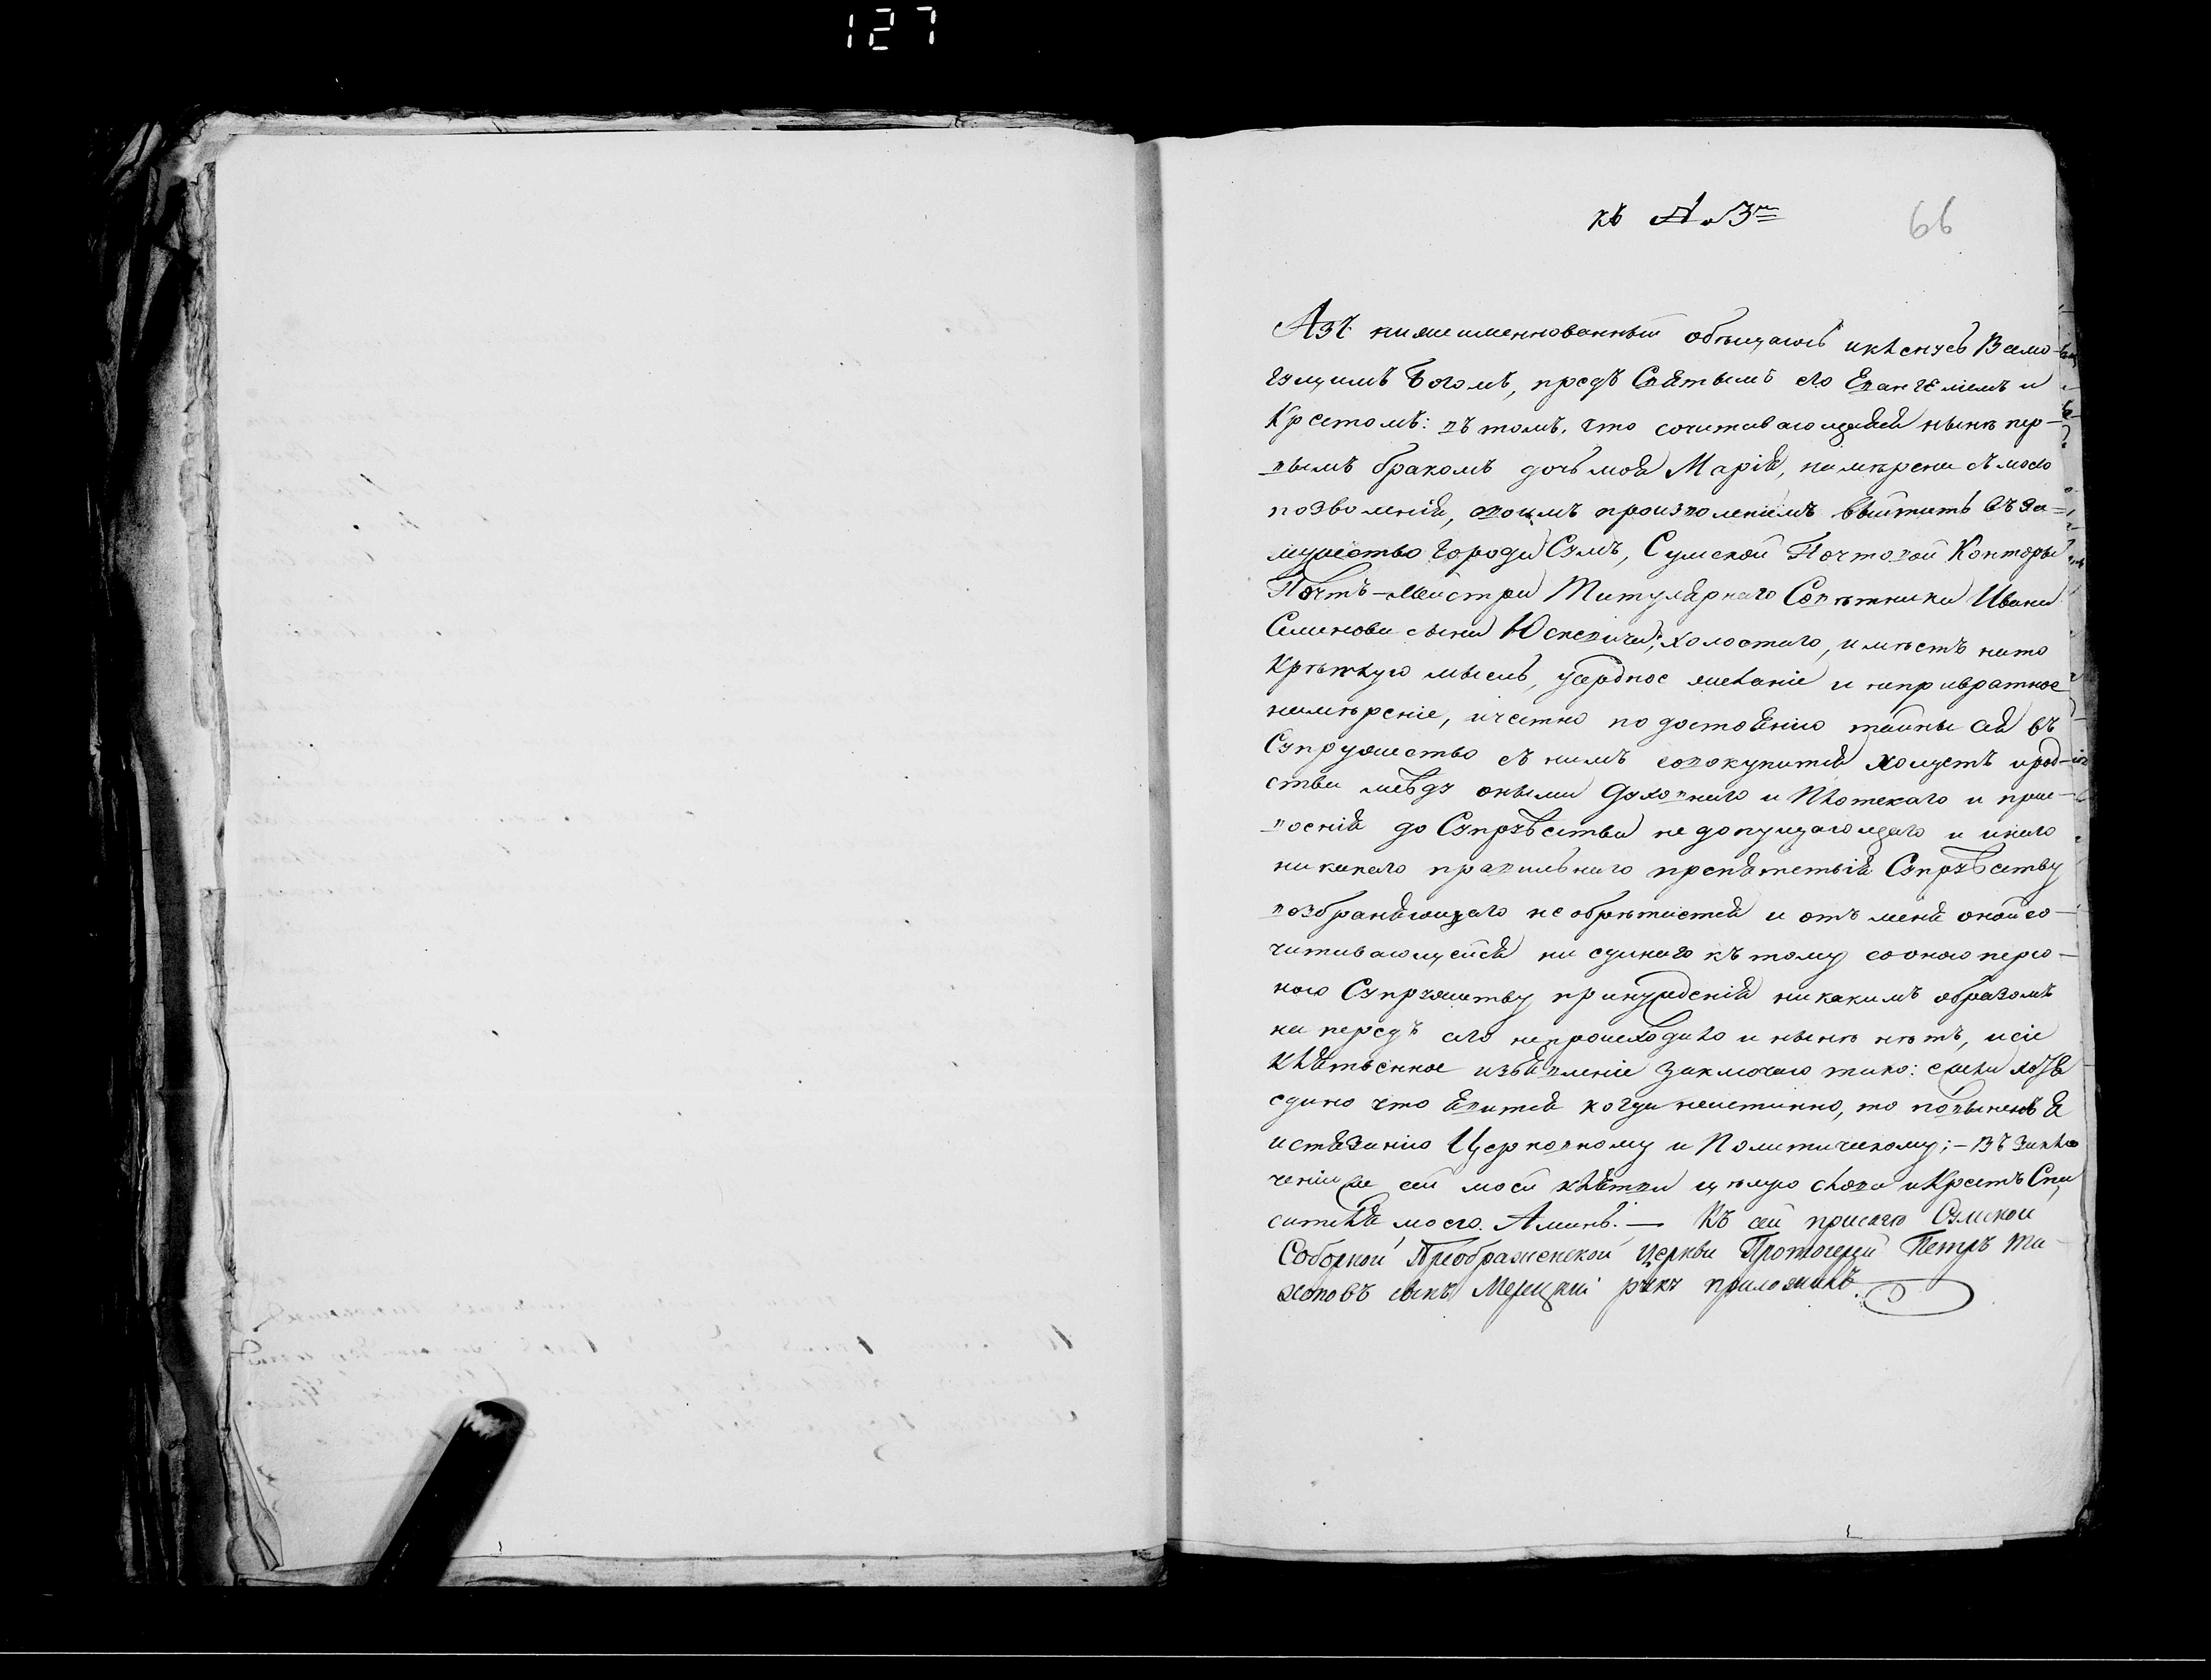 127
къ № 3му
66
Азъ нижеименнованный обѣщаюсь и кленусь Всемо-
гущимъ Богомъ, предъ Святымъ его Евангелiемъ и
Крестомъ: въ томъ, что сочитывающаяся нынѣ пер-
вымъ бракомъ дочь моя Марiя, намѣрена съ моего
позволенiя, своимъ произволенiемъ выйтить въ за-
мужество города Сумъ, Сумской Почтовой Конторы
Почтъ-Мейстра Титулярнаго Совѣтника Ивана
Семенова сына Юскевича, холостаго, имѣетъ на то
крѣпкую мысль, усердное желанiе и непривратное
намѣренiе, и честно по достоянiю тайны сея въ
Супружество съ нимъ совокупится хощетъ и род-
ства между оными Духовнаго и Плотскаго и прис-
военiя до Супружества не допущающаго и инаго
никакаго правильнаго препятствiя Супружеству
возбраняющаго не обрѣтается и отъ меня оной со-
читывающейся ни единаго къ тому со оною персо-
ною Супружеству принужденiя никакимъ образомъ
на передъ сего не происходило и нынѣ нѣтъ, и сiе
клятвенное изъявленiе заключаю тако: ежели хотя
едино что явится когда неистинно, то повиненъ я
истязанiю Церковному и Политическому; – Въ заклю
ченiи же сей моей клятвы цѣлую слова и Крестъ Спа
сителя моего. Аминь. — Къ сей присягѣ Сумской
Соборной Преображенской церкви Протоiерей Петръ Ти-
ховъ сынъ Мерецкiй руку приложилъ.